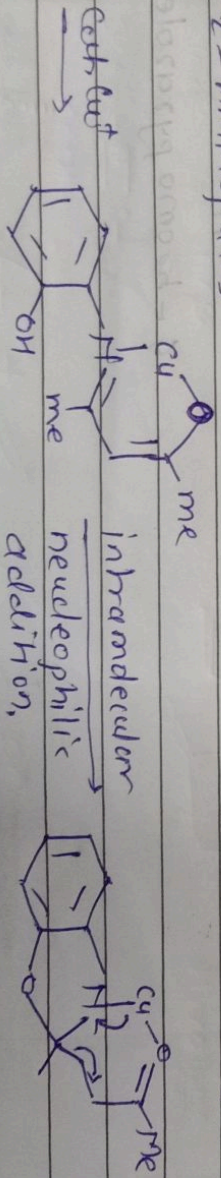 Cu
O
Me
N
Me
OH
intramolecular
neucleophilic
addition,
Cu
O
N
Me
O